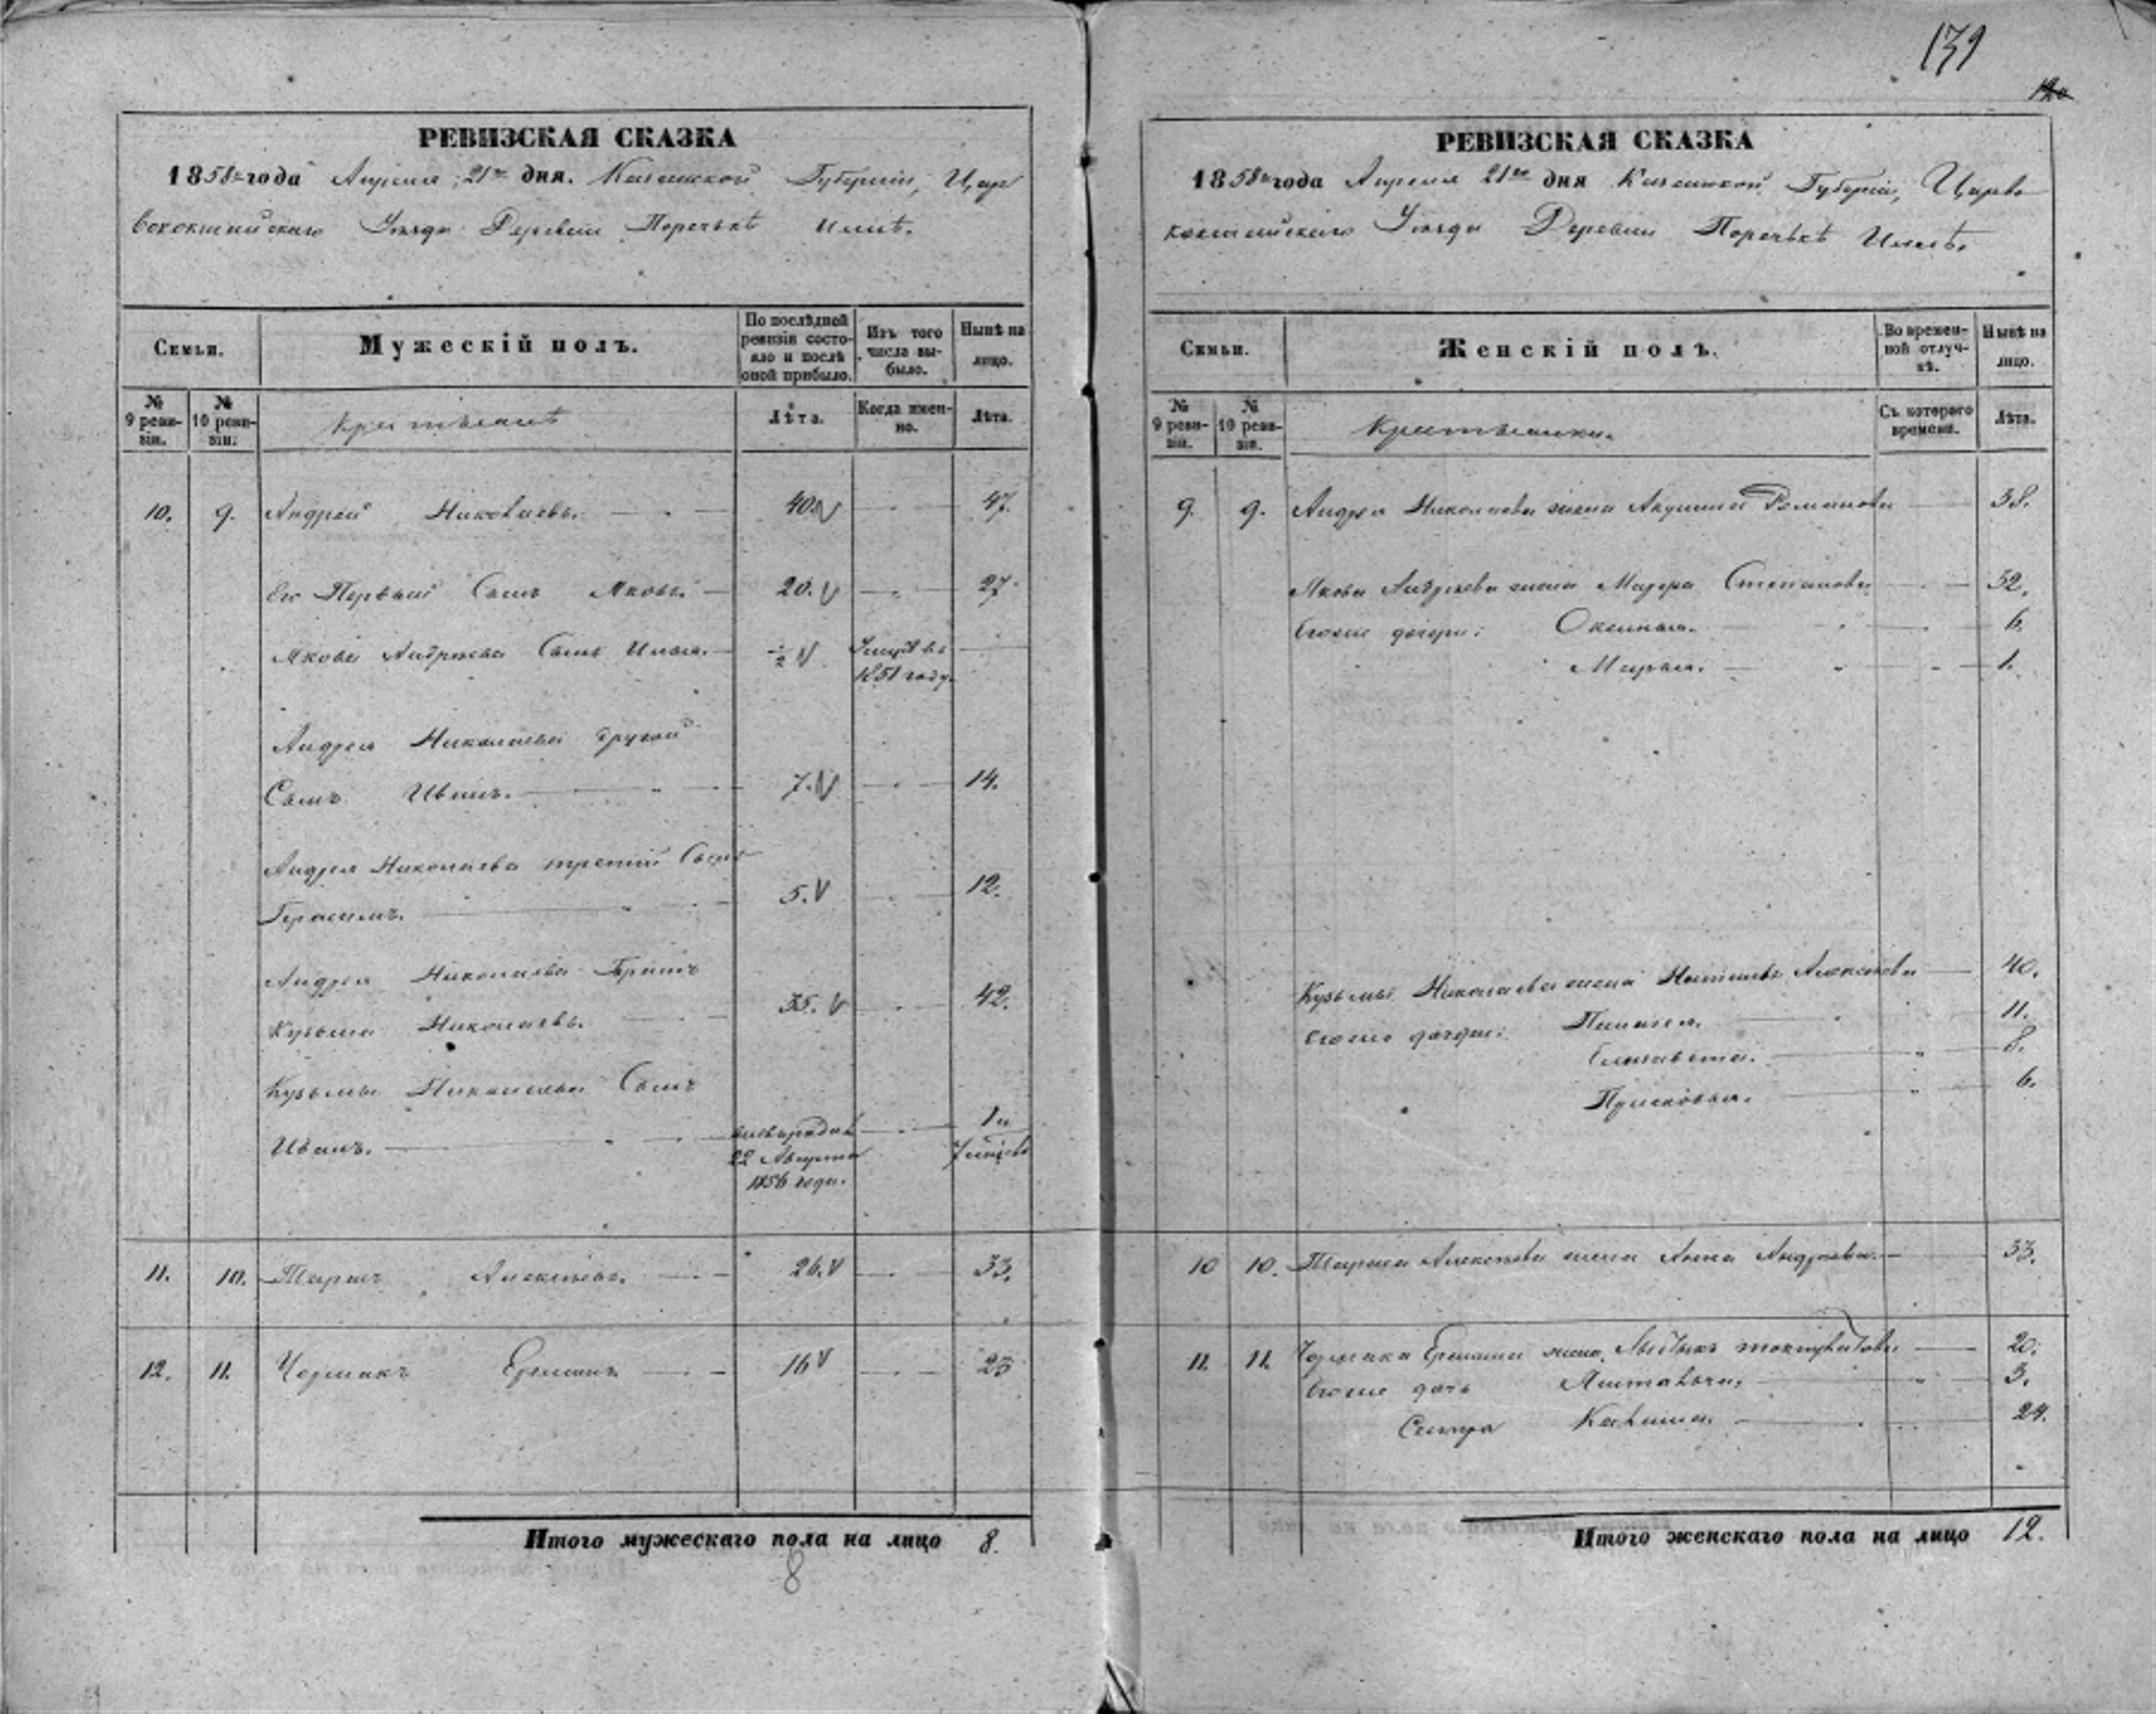 139
РЕВИЗСКАЯ СКАЗКА
1858го года Апреля 21го дня. Казанской Губернiи, Царе
вококшайскаго Уезда Деревни Поречьѣ
Семьи.
Мужескiй полъ.
По послѣдней ревизiи состо-
яло и послѣ
оной прибыло.
Изъ того
числа вы-
было.
Нынѣ на
лицо.
№
9 реви-
зiи.
№
10 реви-
зiи.
Крестьянѣ
Лѣта.
Когда имен-
но.
Лѣта.
10. 9. Андрей Николаевъ. 40. 47.
Его Первый Сынъ Яковъ. 20. 27.
Якова Андреева Сынъ Илья. ½ Умеръ въ
1851 году.
Андрея Николаева другой
Сынъ Иванъ. 7. 14.
Андрея Николаева третiй Сынъ
Герасимъ. 5. 12.
Андрея Николаева Братъ
Кузьма Николаевъ. 35. 42.
Кузьмы Николаева Сынъ
Иванъ. 1 и
22 Августа
1856 года.
11. 10. Тарасъ Алексѣевъ. 26. 33.
12. 11. Чермакъ 16 23
Итого мужескаго пола на лицо 8.
8
РЕВИЗСКАЯ СКАЗКА
1858го года Апреля 21го дня Казанской Губернiи, Царево
кокшайскаго Уезда Деревни Поречьѣ
Семьи.
Женскiй полъ.
Во времен-
ной отлуч-
кѣ.
Нынѣ на
лицо.
№
9 реви-
зiи.
№
10 реви-
зiи.
Крестьянки.
Съ котораго
времени.
Лѣта.
9. 9. Андрея Николаева жена Акулина Романова 38.
Якова Андреева жена Марфа Степанова 32.
Егоже дочери: Оксинья. 6.
Марья. 1.
Кузьмы Николаева жена Наталья Алексѣева 40.
Егоже дочери: Пелагея. 11.
Елизавета. 8.
Прасковья. 6.
10 10. Тараса Алексѣева жена Анна Андреева. 33.
11. 11. Чермака жена 20.
Егоже дочь 3.
Сестра 24.
Итого женскаго пола на лицо 12.